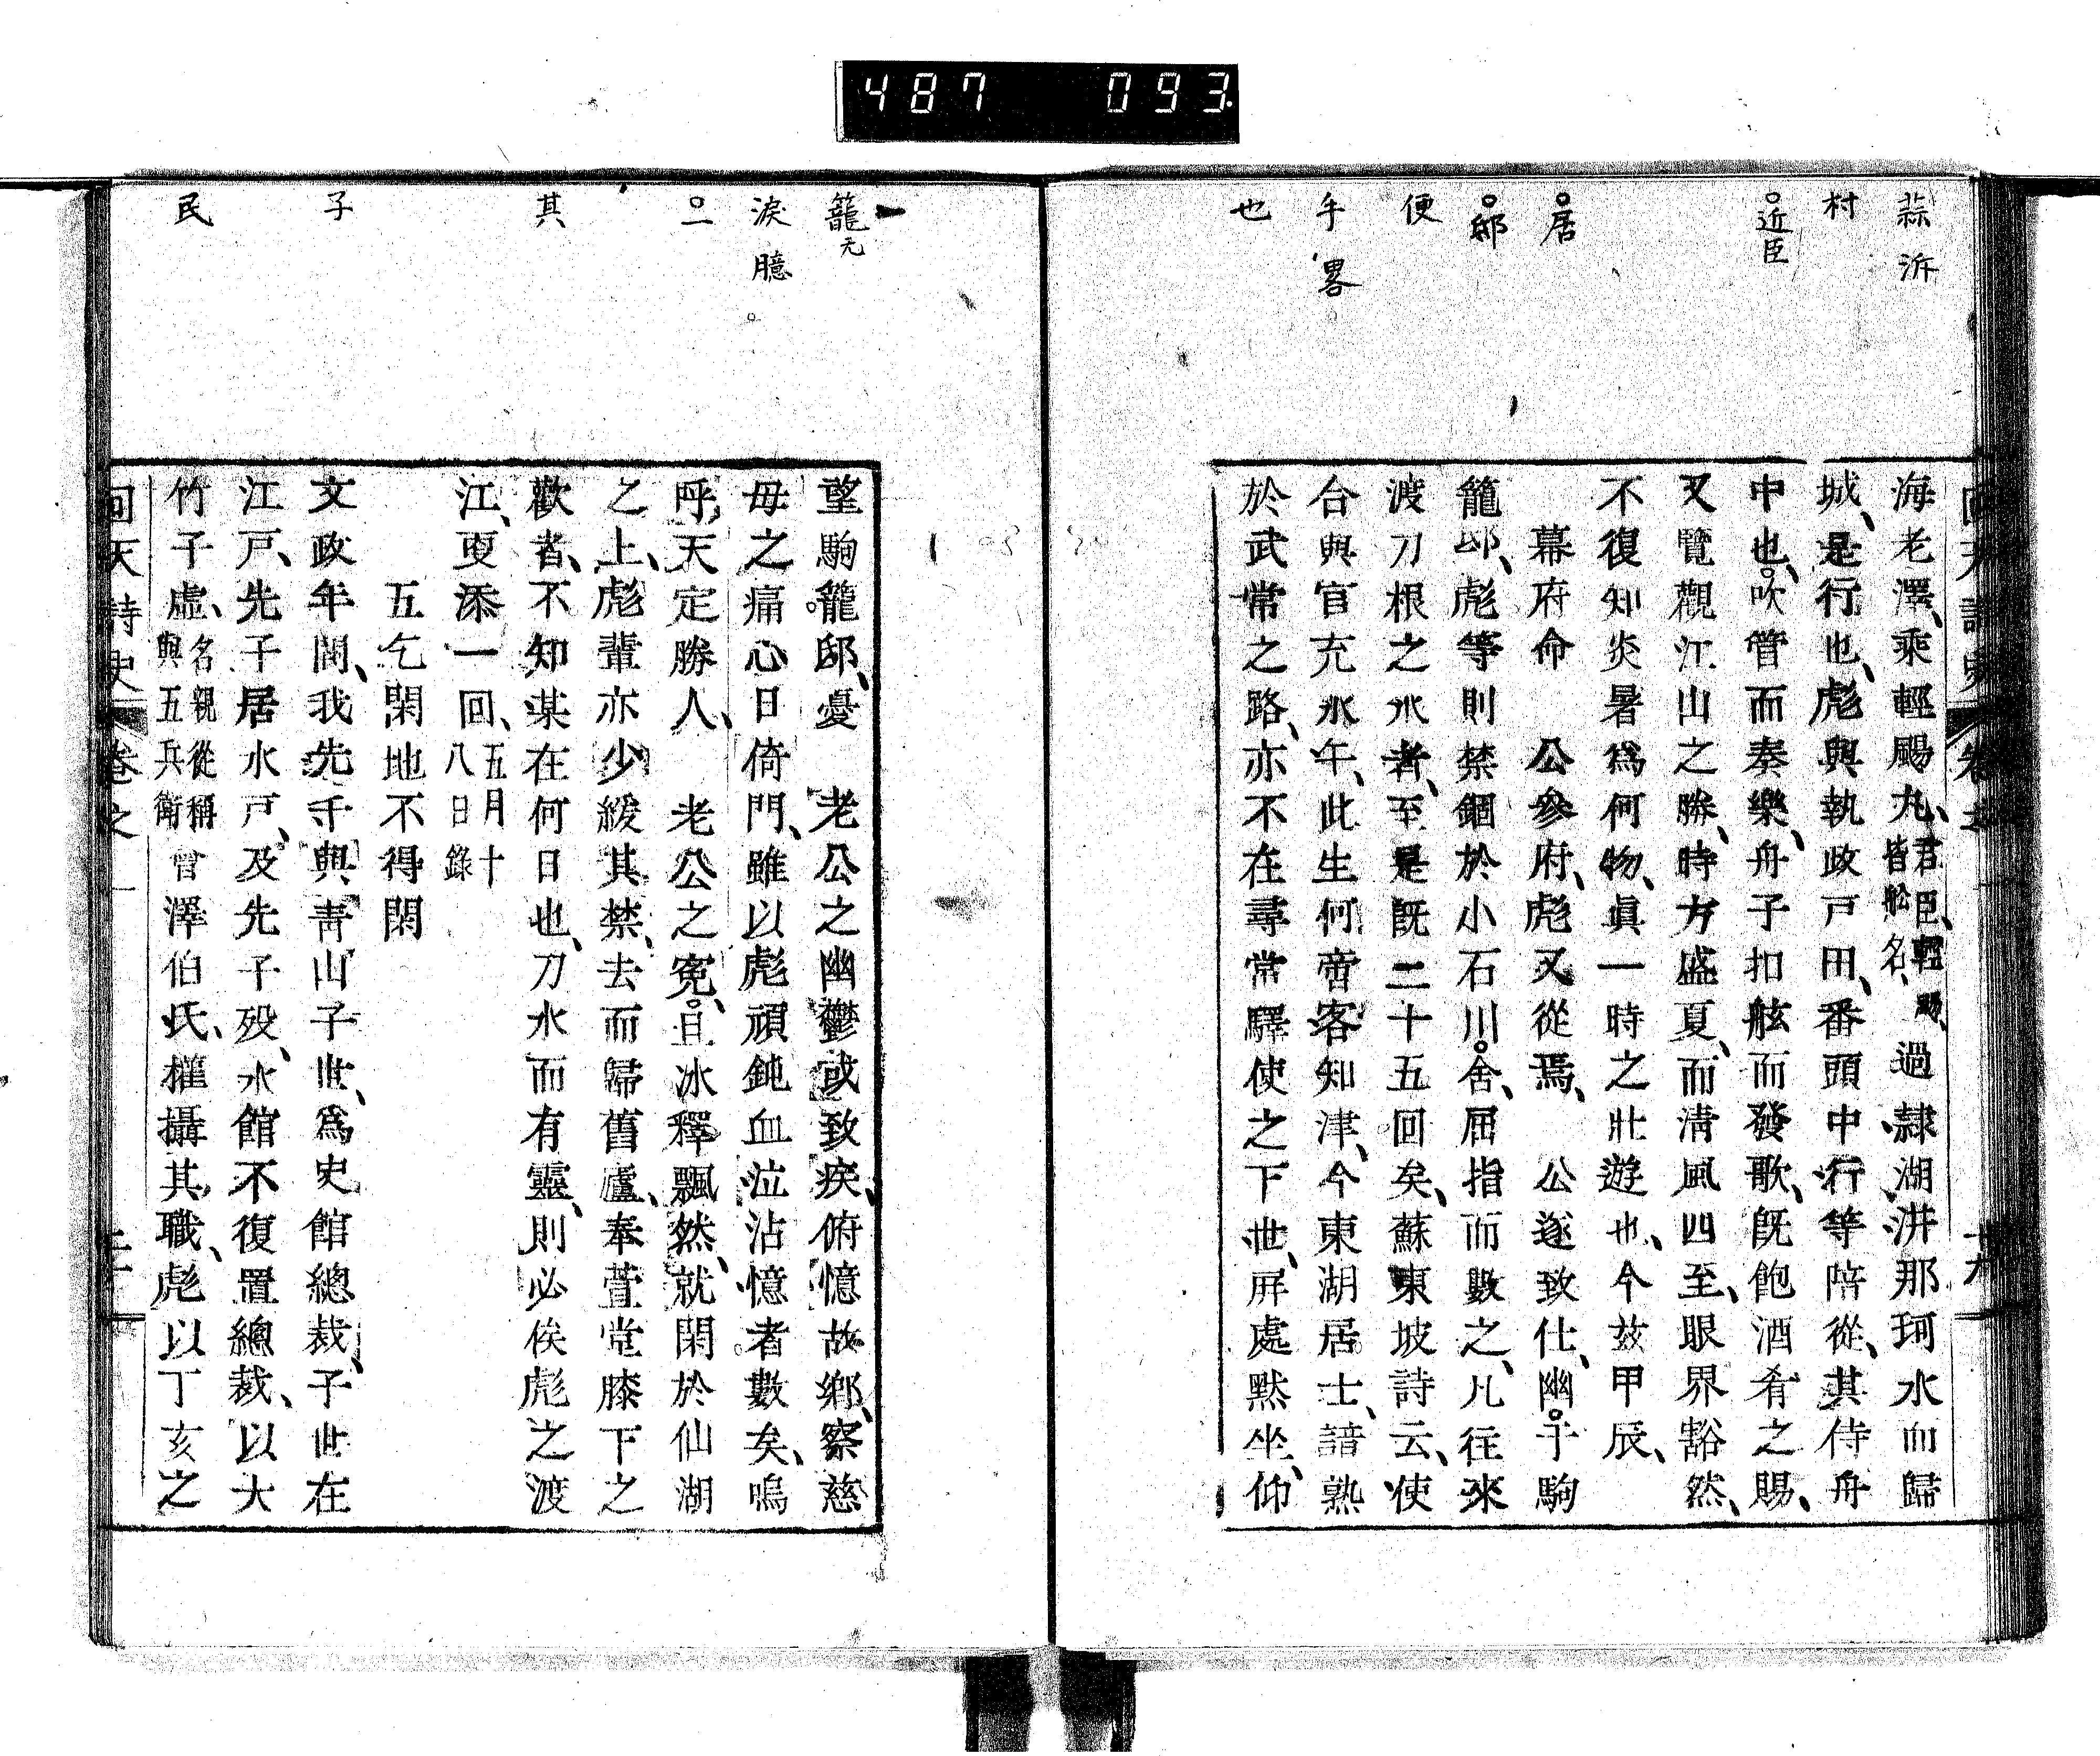 487 093
蒜 泝
村
近臣
居
邸
便
手 畧
也
海老澤、乘輕颺丸、君臣、輕颺、皆舩名、過隷湖、泝那珂水而歸
城、是行也、彪與執政戸田、番頭中行等陪從、其侍舟
中也、吹管而奏樂、舟子扣舷而發歌、既飽酒肴之賜、
又覽觀江山之勝、時方盛夏、而淸風四至、眼界豁然、
不復知炎暑爲何物、眞一時之壯遊也、今玆甲辰、
幕府命 公參府、彪又從焉、 公遂致仕、幽于駒
籠邸、彪等則禁錮於小石川舍、屈指而數之、凡往來
渡刀根之水者、至是既二十五回矣、蘇東坡詩云、使
合與官充水午、此生何啻客知津、今東湖居士、諳熟
於武常之路、亦不在尋常驛使之下世、屏處默坐、仰
籠 尢
淚 臆
二
其
子
民
望駒籠邸、憂 老公之幽鬱或致疾、俯憶故鄕、察慈
母之痛心日倚門、雖以彪頑鈍血泣沾憶者數矣、嗚
呼、天定勝人、 老公之寃、且冰釋飄然、就閑於仙湖
之上、彪輩亦少緩其禁、去而歸舊廬、奉萱堂膝下之
歡者、不知某在何日也、刀水而有靈、則必俟彪之渡
江、更添一回、五月十八日錄
五乞閑地不得閑
文政年間、我先子與靑山子世、爲史館總裁、子世在
江戸、先子居水戸、及先子歿、水館不復置總裁、以大
竹子虛、名親從稱與五兵衛會澤伯氏、權攝其職、彪以丁亥之
回天詩史 卷之